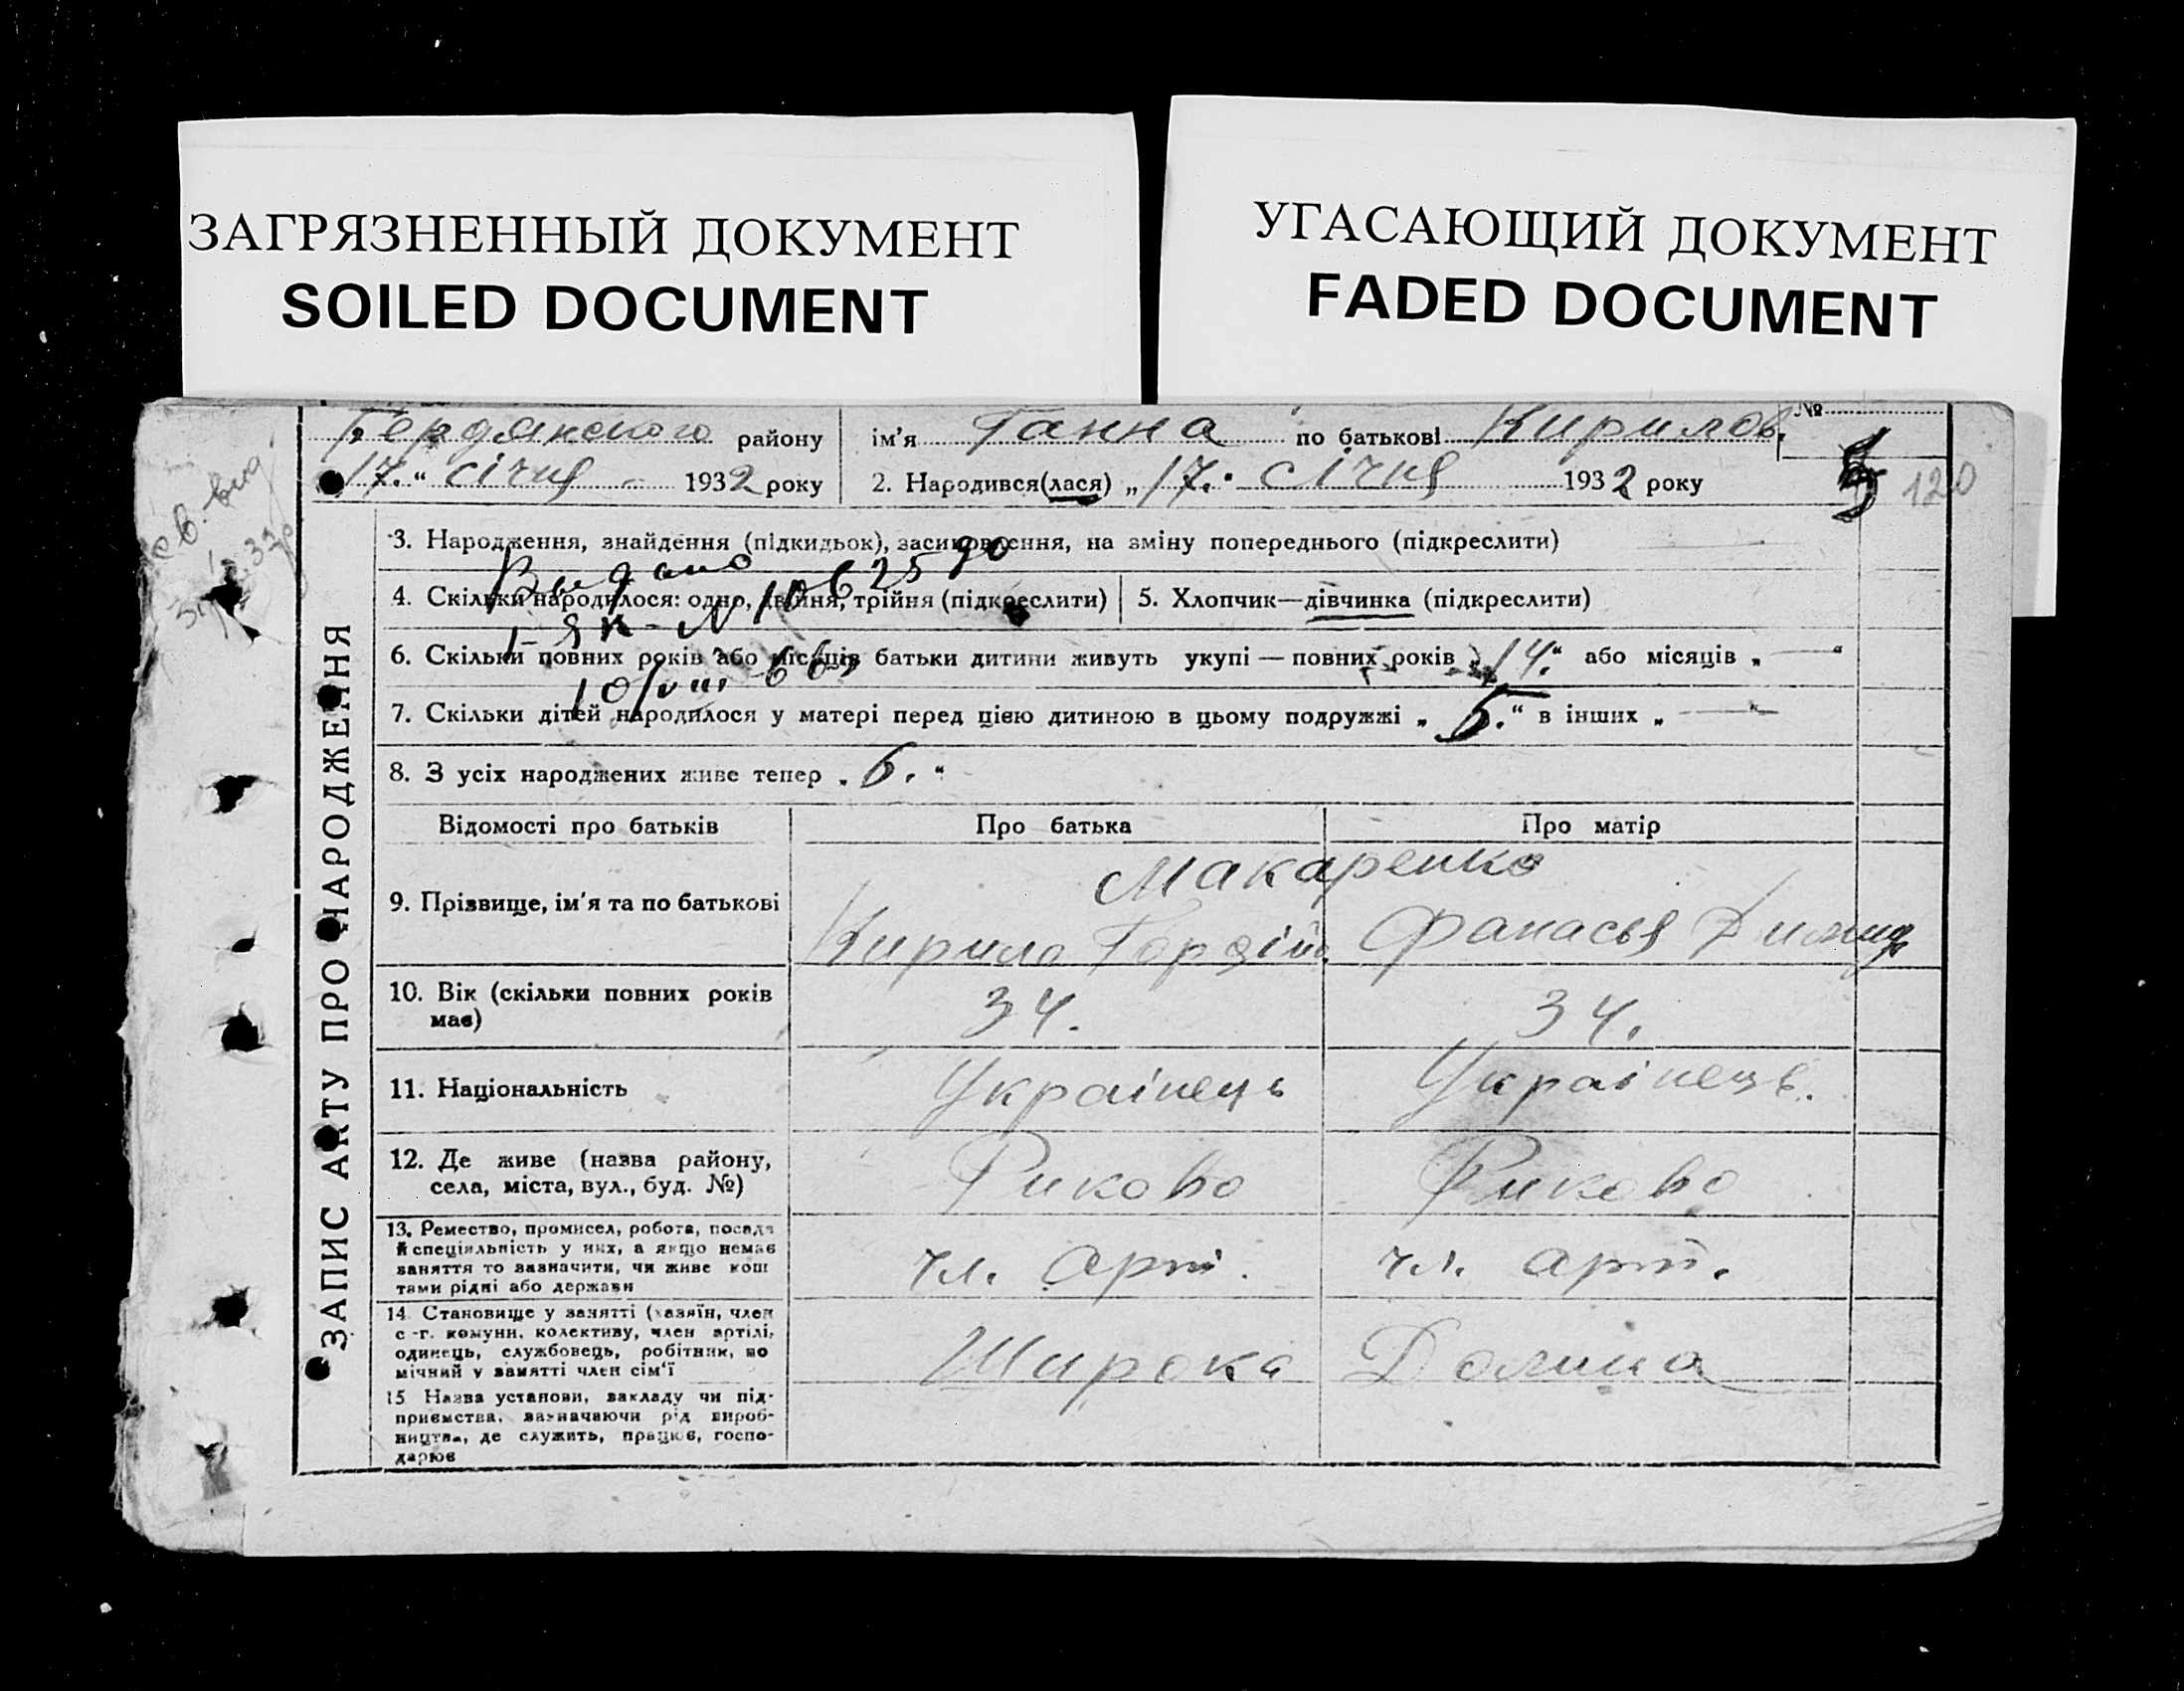 ЗАГРЯЗНЕННЫЙ ДОКУМЕНТ
SOILED DOCUMENT
УГАСАЮЩИЙ ДОКУМЕНТ
FADED DOCUMENT
Бердянского району
ім'я Ганна по батькові Кирилов.
№
"17." січня 1932 року
2. Народився(лася) "17." січня 1932 року
5
120
св. вид.
ЗАПИС АКТУ ПРО НАРОДЖЕННЯ
3. Народження, знайдення (підкидьок), засиновлення, на зміну попереднього (підкреслити)
Видано
4. Скільки народилося: одно, двійня, трійня (підкреслити)
5. Хлопчик—дівчинка (підкреслити)
I-ЯК-N 1062590
6. Скільки повних років або місяців батьки дитини живуть укупі — повних років „14." або місяців „ — "
10/VIII
7. Скільки дітей народилося у матері перед цією дитиною в цьому подружжі „5." в інших „ — "
8. З усіх народжених живе тепер „6."
Відомості про батьків
Про батька
Про матір
9. Прізвище, ім'я та по батькові
Макаренко
Кирило Гордій.
Фанасья Димид
10. Вік (скільки повних років має)
34.
34.
11. Національність
Українець
Українець.
12. Де живе (назва району, села, міста, вул., буд. №)
Риково
Риково
13. Ремество, промисел, робота, посада й спеціяльність у них, а якщо немає заняття то зазначити, чи живе коштами рідні або держави
чл. арт.
чл. арт.
14. Становище у занятті (хазяїн, член с.-г. комуни, колективу, член артілі, одинець, службовець, робітник, помічний у занятті член сім'ї
Широка Долина
15. Назва установи, закладу чи підприємства, зазначаючи рід виробництва, де служить, працює, господарює